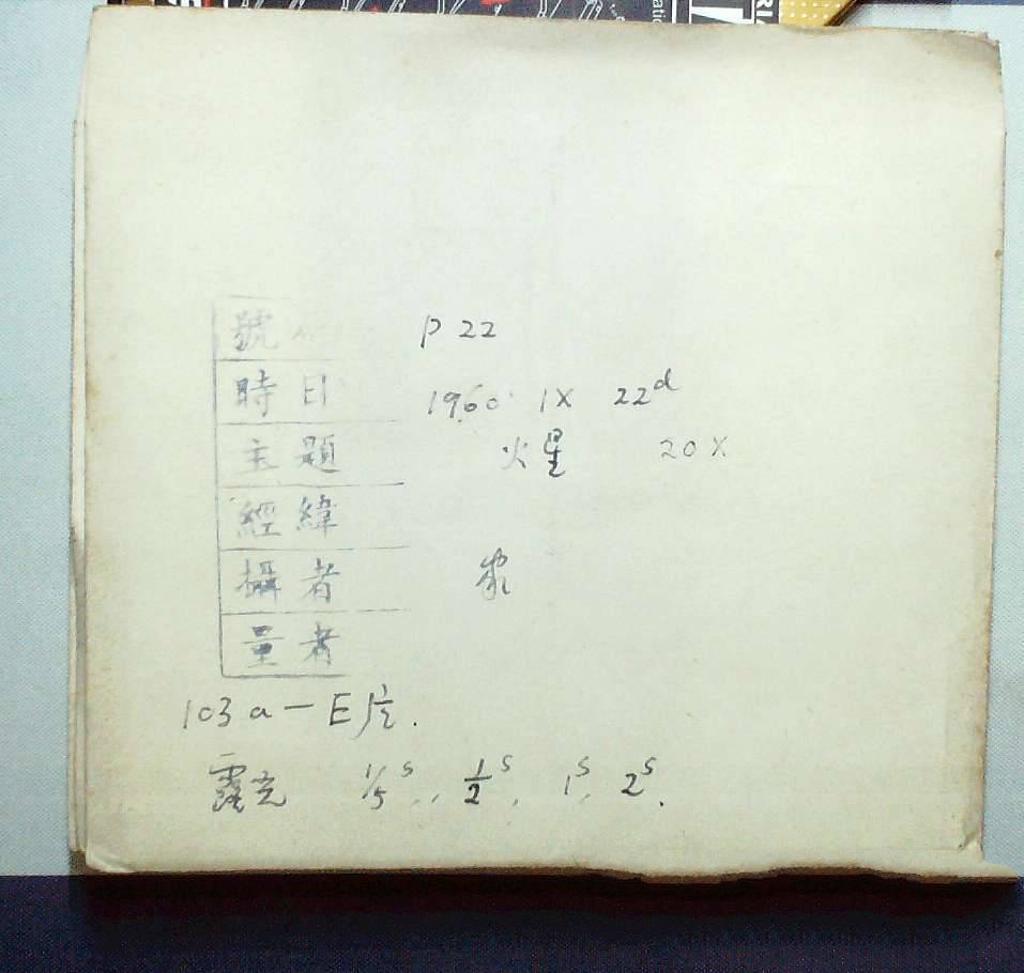 號 P 22
時日 1960 IX 22d
主題 火星 20 X
經緯
攝者
量者
103a—E片.
露光 1/5s, 1/2s, 1s, 2s.